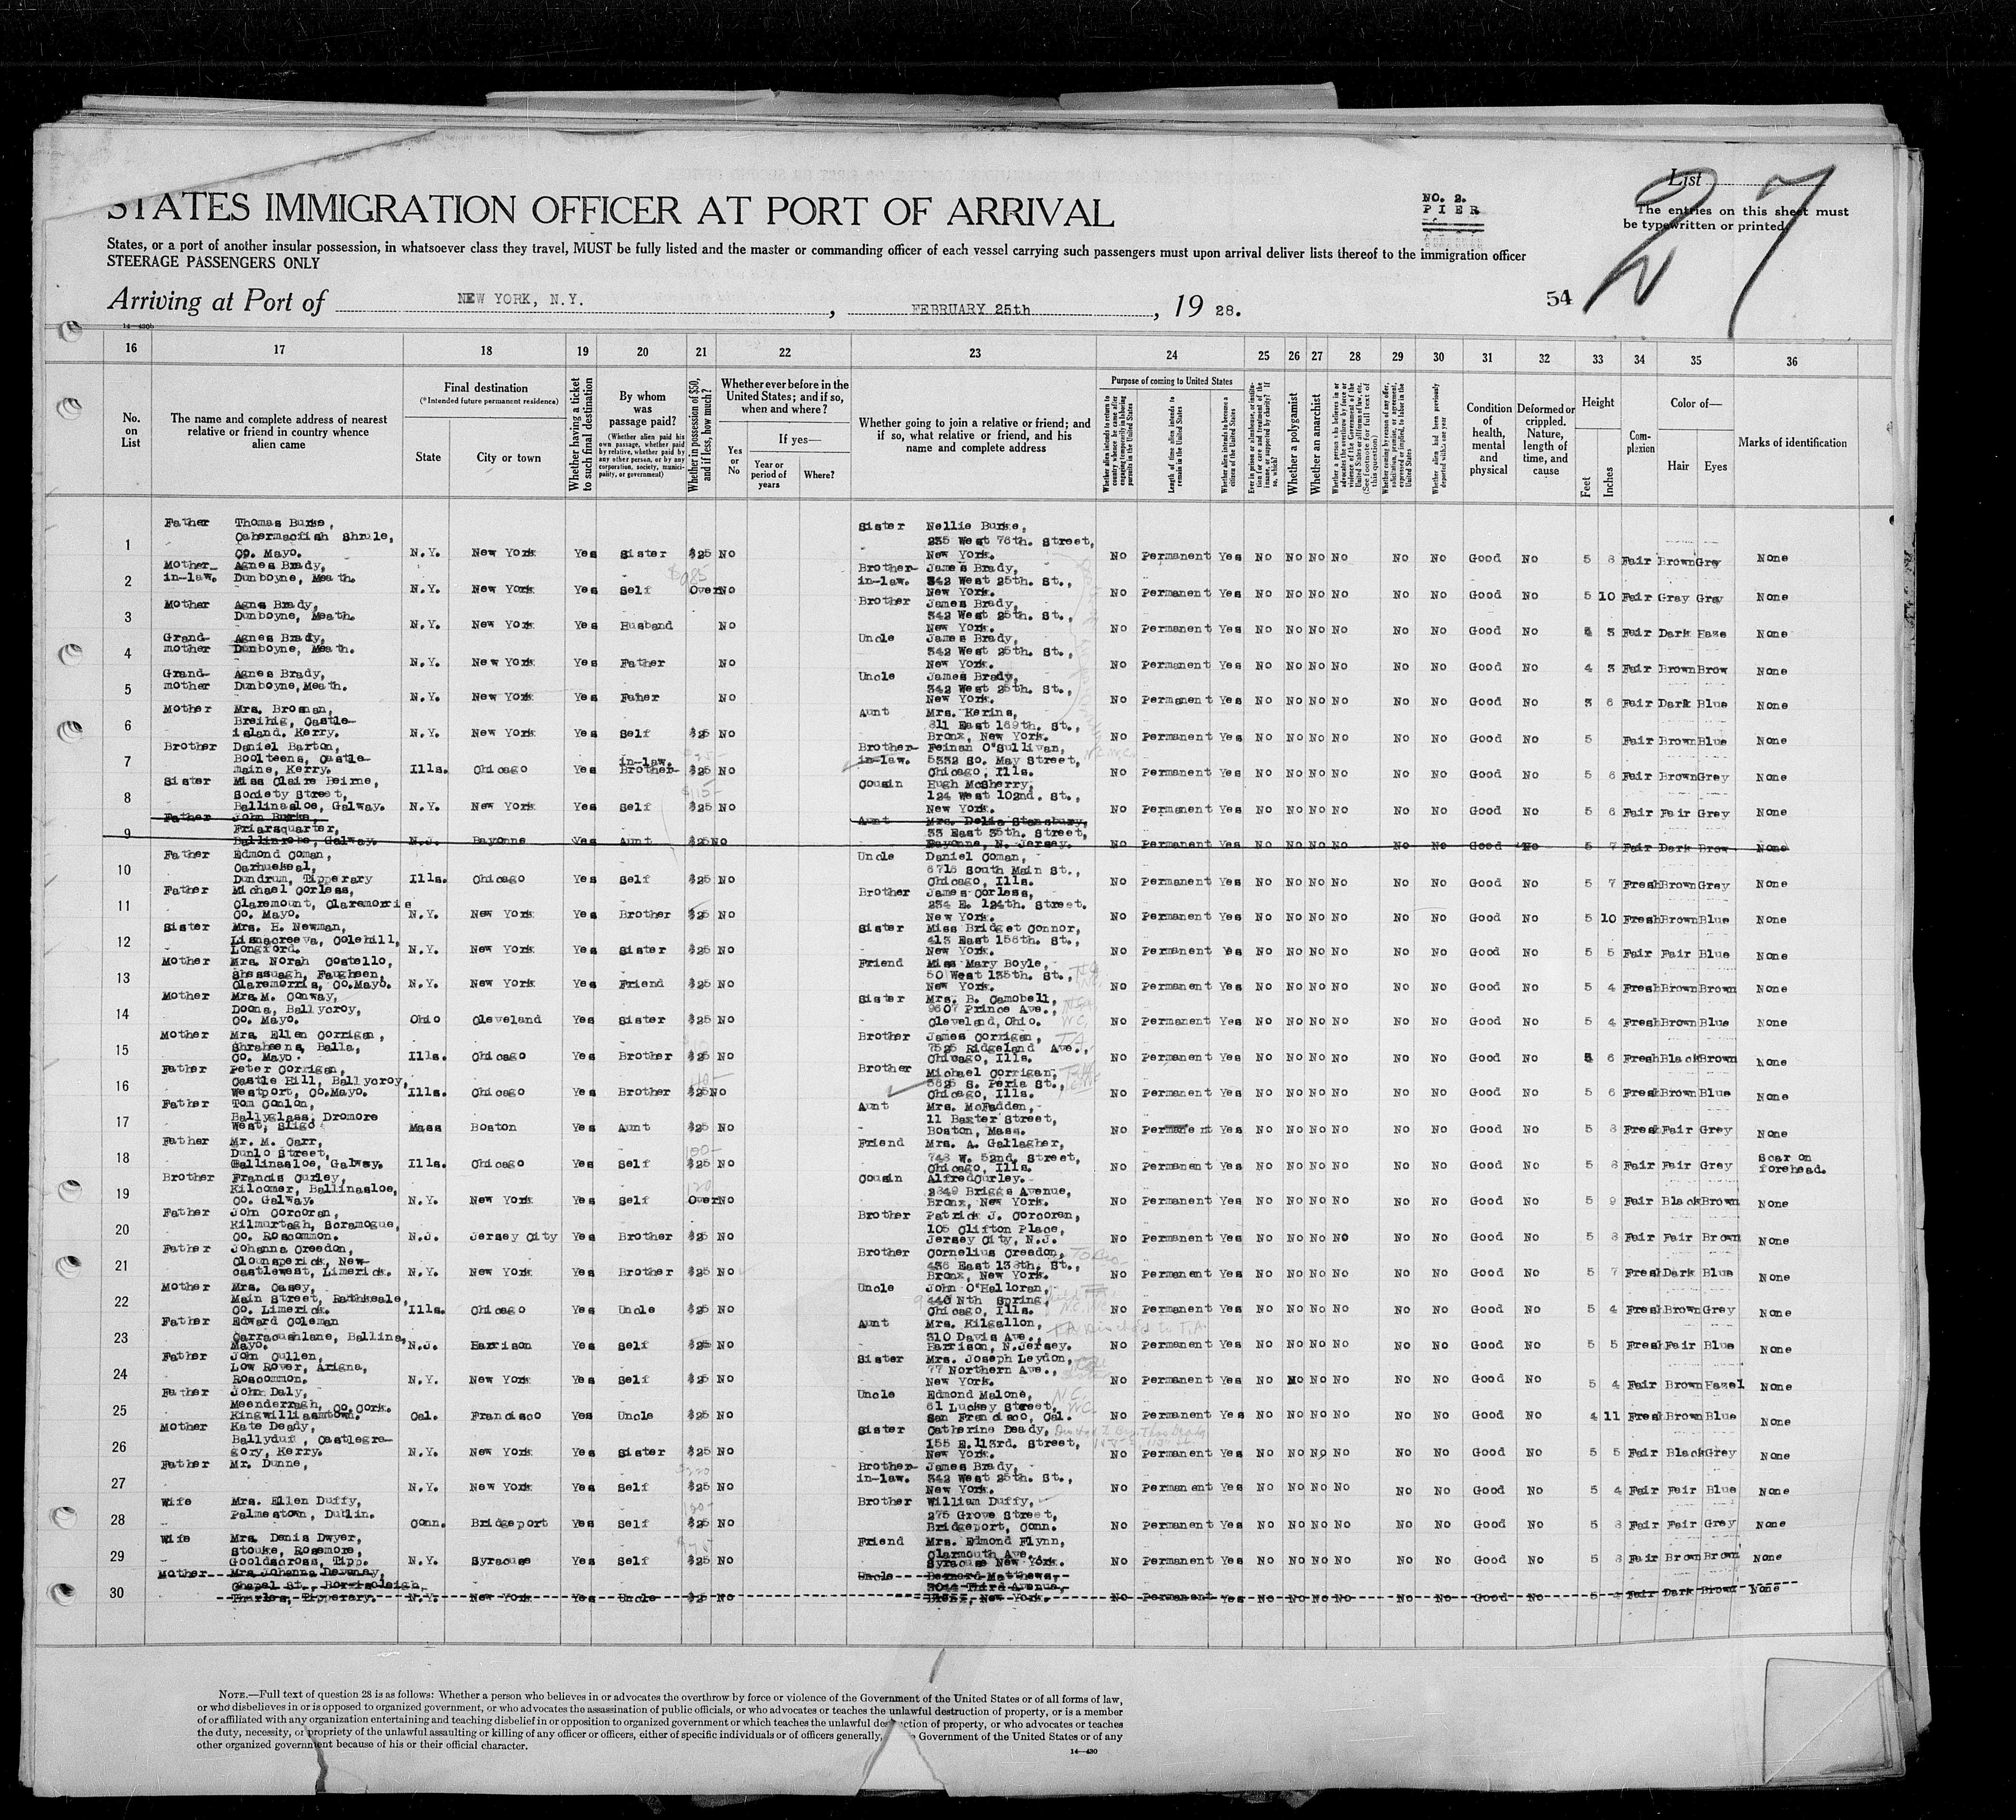 List 27
STATES IMMIGRATION OFFICER AT PORT OF ARRIVAL
NO. 2.
PIER
The entries on this sheet must
be typewritten or printed.
States, or a port of another insular possession, in whatsoever class they travel, MUST be fully listed and the master or commanding officer of each vessel carrying such passengers must upon arrival deliver lists thereof to the immigration officer
STEERAGE PASSENGERS ONLY
Arriving at Port of NEW YORK, N.Y. , FEBRUARY 25th , 19 28.
54
14—430b
16 17 18 19 20 21 22 23 24 25 26 27 28 29 30 31 32 33 34 35 36
No. on List
The name and complete address of nearest relative or friend in country whence alien came
Final destination
(*Intended future permanent residence)
State
City or town
Whether having a ticket to such final destination
By whom was passage paid?
(Whether alien paid his own passage, whether paid by relative, whether paid by any other person, or by any corporation, society, municipality, or government)
Whether in possession of $50, and if less, how much?
Whether ever before in the United States; and if so, when and where?
Yes or No
If yes—
Year or period of years
Where?
Whether going to join a relative or friend; and if so, what relative or friend, and his name and complete address
Purpose of coming to United States
Length of time alien intends to remain in the United States
Whether alien intends to become a citizen of the United States
Whether a polygamist
Whether an anarchist
Condition of health, mental and physical
Deformed or crippled. Nature, length of time, and cause
Height
Feet
Inches
Complexion
Color of—
Hair
Eyes
Marks of identification
1 Father Thomas Burke, Cahermacfish Shrule, Co. Mayo. N.Y. New York Yes Sister $25 No Sister Nellie Burke, 235 West 76th. Street, New York. No Permanent Yes No No No No No No Good No 5 8 Fair Brown Grey None
2 Mother-in-law. Agnes Brady, Dunboyne, Meath. N.Y. New York Yes Self Over No Brother-in-law. James Brady, 342 West 25th. St., New York. No Permanent Yes No No No No No No Good No 5 10 Fair Gray Gray None
3 Mother Agnes Brady, Dunboyne, Meath. N.Y. New York Yes Husband No Brother James Brady, 342 West 25th. St., New York. No Permanent Yes No No No No No No Good No 5 3 Fair Dark Haze None
4 Grand-mother Agnes Brady, Dunboyne, Meath. N.Y. New York Yes Father No Uncle James Brady, 342 West 25th. St., New York. No Permanent Yes No No No No No No Good No 4 3 Fair Brown Brow None
5 Grand-mother Agnes Brady, Dunboyne, Meath. N.Y. New York Yes Faher No Uncle James Brady, 342 West 25th. St., New York. No Permanent Yes No No No No No No Good No 3 6 Fair Dark Blue None
6 Mother Mrs. Brosnan, Breihig, Castle-island. Kerry. N.Y. New York Yes Self $25 No Aunt Mrs. Kerins, 811 East 169th. St., Bronx, New York. No Permanent Yes No No No No No No Good No 5 Fair Brown Blue None
7 Brother Daniel Barton, Boolteens, Castle-maine, Kerry. Ills. Chicago Yes Brother-in-law. $25 No Brother-in-law. Feinan O'Sullivan, 5332 So. May Street, Chicago, Ills. No Permanent Yes No No No No No No Good No 5 6 Fair Brown Grey None
8 Sister Miss Claire Beirne, Society Street, Ballinasloe, Galway. N.Y. New York Yes Self $25 No Cousin Hugh McSherry, 124 West 102nd. St., New York. No Permanent Yes No No No No No No Good No 5 6 Fair Fair Grey None
9 Father John Burke, Friarsquarter, Ballinrobe, Galway. N.J. Bayonne Yes Aunt $25 No Aunt Mrs. Delia Stansbury, 33 East 35th. Street, Bayonne, N. Jersey. No Permanent Yes No No No No No No Good No 5 7 Fair Dark Brow None
10 Father Edmond Coman, Carhuekeal, Dundrum, Tipperary Ills. Chicago Yes Self $25 No Uncle Daniel Coman, 6718 South Main St., Chicago, Ills. No Permanent Yes No No No No No No Good No 5 7 Fresh Brown Grey None
11 Father Michael Corless, Claremount, Claremorris Co. Mayo. N.Y. New York Yes Brother $25 No Brother James Corless, 234 E. 124th. Street. New York. No Permanent Yes No No No No No No Good No 5 10 Fresh Brown Blue None
12 Sister Mrs. E. Newman, Lisnacreeva, Colehill, Longford. N.Y. New York Yes Sister $25 No Sister Miss Bridget Connor, 413 East 156th. St., New York. No Permanent Yes No No No No No No Good No 5 5 Fair Fair Blue None
13 Mother Mrs. Norah Costello, Shessuagh, Faugheen, Claremorris, Co.Mayo. N.Y. New York Yes Friend $25 No Friend Miss Mary Boyle, 50 West 135th. St., New York. No Permanent Yes No No No No No No Good No 5 4 Fresh Brown Brown None
14 Mother Mrs.M. Conway, Doona, Ballycroy, Co. Mayo. Ohio Cleveland Yes Sister $25 No Sister Mrs. B. Campbell, 9607 Prince Ave., Cleveland, Ohio. No Permanent Yes No No No No No No Good No 5 4 Fresh Brown Blue None
15 Mother Mrs. Ellen Corrigan, Shraheens, Balla, Co. Mayo. Ills. Chicago Yes Brother $25 No Brother James Corrigan, 7525 Ridgeland Ave., Chicago, Ills. No Permanent Yes No No No No No No Good No 5 6 Fresh Black Brown None
16 Father Peter Corrigan, Castle Hill, Ballycroy, Westport, Co.Mayo. Ills. Chicago Yes Brother $25 No Brother Michael Corrigan, 5625 S. Peria St., Chicago, Ills. No Permanent Yes No No No No No No Good No 5 6 Fresh Brown Blue None
17 Father Tom Conlon, Ballyglass, Dromore West, Sligo Mass Boston Yes Aunt $25 No Aunt Mrs. McFadden, 11 Baxter Street, Boston, Mass. No Permanent Yes No No No No No No Good No 5 8 Fresh Fair Grey None
18 Father Mr. M. Carr, Dunlo Street, Ballinasloe, Galway. Ills. Chicago Yes Self $25 No Friend Mrs. A. Gallagher, 743 W. 52nd. Street, Chicago, Ills. No Permanent Yes No No No No No No Good No 5 8 Fair Fair Grey Scar on forehead.
19 Brother Francis Curley, Kilcomer, Ballinasloe, Co. Galway. N.Y. New York Yes Self Over No Cousin Alfred Curley. 2849 Briggs Avenue, Bronx, New York. No Permanent Yes No No No No No No Good No 5 9 Fair Black Brown None
20 Father John Corcoran, Kilmurtagh, Scramogue, Co. Roscommon. N.J. Jersey City Yes Brother $25 No Brother Patrick J. Corcoran, 105 Clifton Place, Jersey City, N.J. No Permanent Yes No No No No No No Good No 5 8 Fair Fair Brown None
21 Father Johanna Creedon, Clounsperick, New-castlewest, Limerick. N.Y. New York Yes Brother $25 No Brother Cornelius Creadon, 436 East 138th. St., Bronx, New York. No Permanent Yes No No No No No No Good No 5 7 Fresh Dark Blue None
22 Mother Mrs. Casey, Main Street, Rathkeale, Co. Limerick. Ills. Chicago Yes Uncle $25 No Uncle John O'Halloran, 440 Nth Spring, Chicago, Ills. No Permanent Yes No No No No No No Good No 5 4 Fresh Brown Grey None
23 Father Edward Coleman Carracushlane, Ballina, Mayo. N.J. Harrison Yes Self $25 No Aunt Mrs. Kilgallon, 310 Davis Ave., Harrison, N.Jersey. No Permanent Yes No No No No No No Good No 5 5 Fresh Fair Blue None
24 Father John Cullen, Low Rover, Arigna, Roscommon. N.Y. New York Yes Self $25 No Sister Mrs. Joseph Leydon, 77 Northern Ave., New York. No Permanent Yes No No No No No No Good No 5 4 Fair Brown Hazel None
25 Father John Daly, Meenderragh, Co.Cork. Kingwilliamtown. Cal. Francisco Yes Uncle $25 No Uncle Edmond Malone, 61 Luckey Street, San Francisco, Cal. No Permanent Yes No No No No No No Good No 4 11 Fresh Brown Blue None
26 Mother Kate Deady, Ballyduff, Castlegre-gory, Kerry. N.Y. New York Yes Sister $25 No Sister Catherine Deady, 155 E.113rd. Street, New York. No Permanent Yes No No No No No No Good No 5 5 Fair Black Grey None
27 Father Mr. Dunne, N.Y. New York Yes Self $25 No Brother-in-law. James Brady, 342 West 25th. St., New York. No Permanent Yes No No No No No No Good No 5 4 Fair Fair Blue None
28 Wife Mrs. Ellen Duffy, Palmestown, Dublin. Conn. Bridgeport Yes Self $25 No Brother William Duffy, 275 Grove Street, Bridgeport, Conn. No Permanent Yes No No No No No No Good No 5 8 Fair Fair Grey None
29 Wife Mrs. Denis Dwyer, Stouke, Rosemore, Gooldscross, Tipp. N.Y. Syracuse Yes Self $25 No Friend Mrs. Edmond Flynn, Clarmouth Ave., Syracuse New York. No Permanent Yes No No No No No No Good No 5 8 Fair Brown Brown None
30 Mother Mrs Johanna Devaney, Chapel St., Borrisoleigh, Thurles, Tipperary. N.Y. New York Yes Uncle $25 No Uncle Bernard Matthews, 3044 Third Avenue, New York. No Permanent Yes No No No No No No Good No 5 4 Fair Dark Brown None
NOTE.—Full text of question 28 is as follows: Whether a person who believes in or advocates the overthrow by force or violence of the Government of the United States or of all forms of law,
or who disbelieves in or is opposed to organized government, or who advocates the assassination of public officials, or who advocates or teaches the unlawful destruction of property, or is a member
of or affiliated with any organization entertaining and teaching disbelief in or opposition to organized government or which teaches the unlawful destruction of property, or who advocates or teaches
the duty, necessity, or propriety of the unlawful assaulting or killing of any officer or officers, either of specific individuals or of officers generally, Government of the United States or of any
other organized government because of his or their official character.
14—430